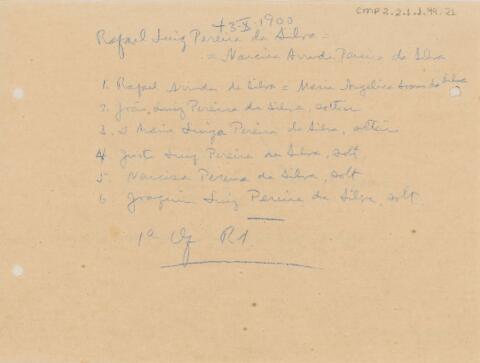 CMP 2.2.1.1.49.21
+ 3-X-1900
Rafael Luiz Pereira da Silva =
= Narcisa Arruda Pereira da Silva
1. Rafael Arruda da Silva = Maria Angelica da Silva
2. João Luiz Pereira da Silva, solteir
3. Maria Luiza Pereira da Silva, solteir
4. Justo Luiz Pereira da Silva, solt
5. Narcisa Pereira da Silva, solt
6 Joaquim Luiz Pereira da Silva, solt
1º Of R1.